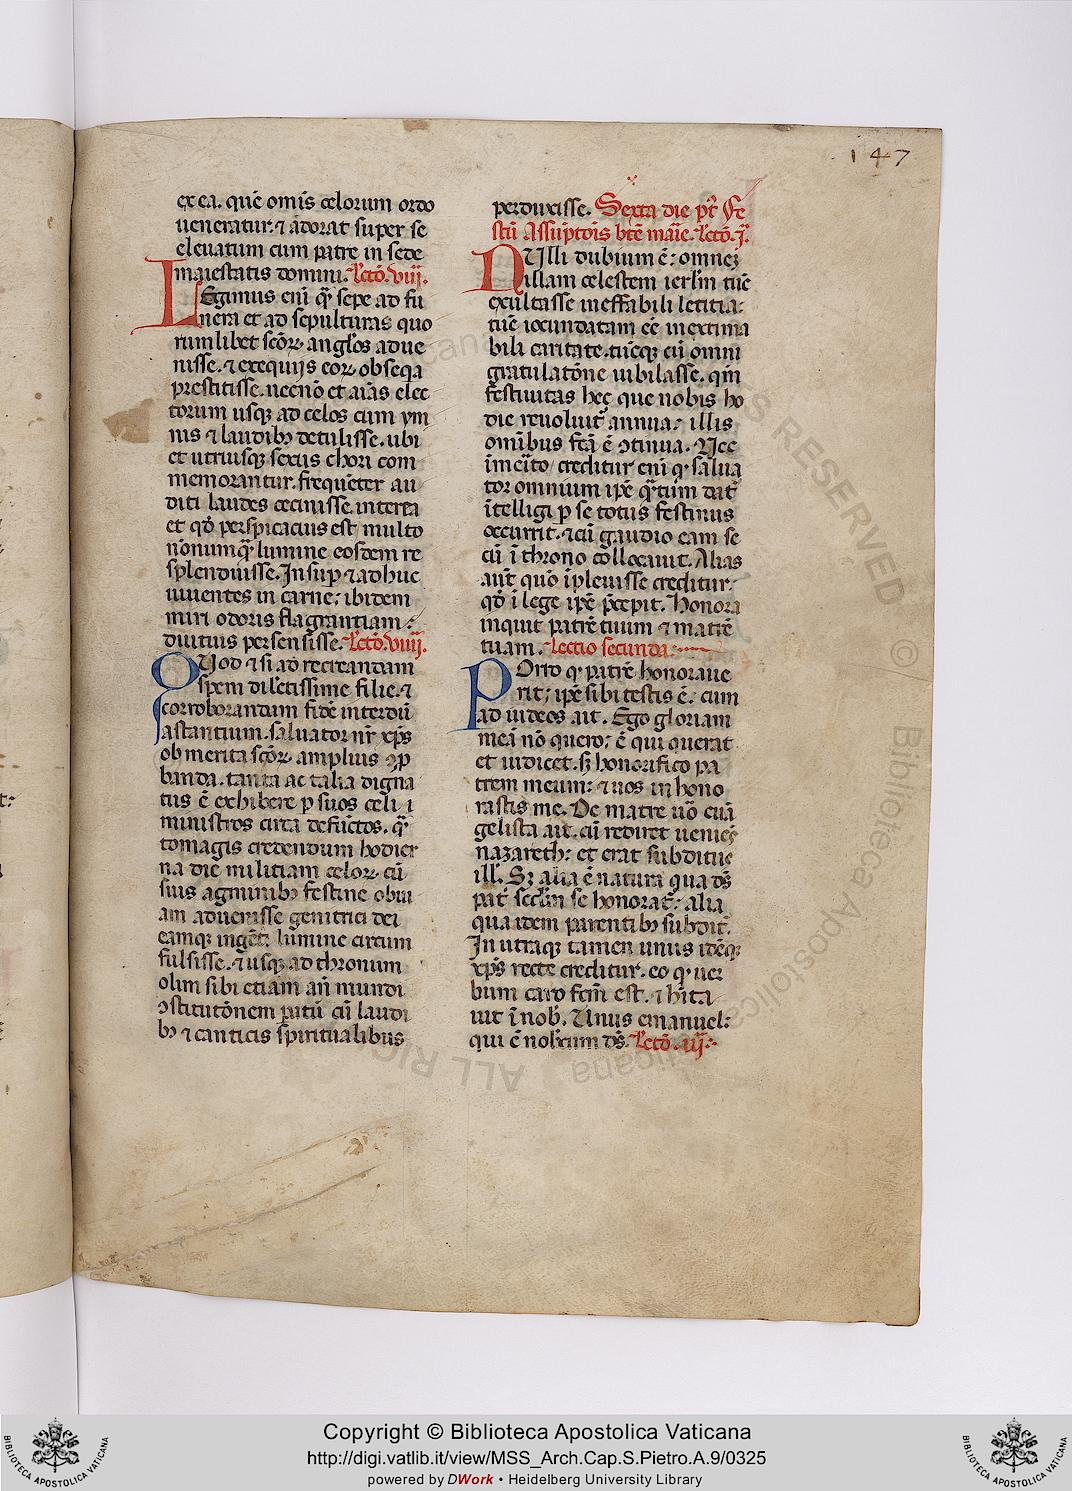 147
ex ea. quē omīs celorum ordo
ueneratur. ⁊ adorat super se
eleuatum cum patre in sede
maiestatis domini. Lectō. viii.
Legimus enī qr̄ sepe ad fu
nera et ad sepulturas quo
rumlibet scōꝝ angl̄os adue
nisse. ⁊ exequijs eoꝝ obseqa
prestitisse. necnō et aīas elec
torum usqꝫ ad celos cum ym
nis ⁊ laudibꝫ detulisse. ubi
et utriusqꝫ sexus chori com
memorantur. frequēter au
diti laudes cecinisse. interea
et qd̄ perspicacius est multo
nōnumqꝫ lumine eosdem re
splenduisse. Insuꝑ ⁊ adhuc
uiuentes in carne; ibidem
miri odoris flagrantiam:
diutius persensisse. Lectō. viiii.
Quod ⁊ si ad recreandam
spem dilectissime filie. ⁊
corroborandam fidē interdū
astantium. saluator nr̄ xp̄s
ob merita scōꝝ amplius ꝯꝓ
banda. tanta ac talia digna
tus ē exhibere ꝑ suos celi i
ministros circa defūctos. qr̄
tomagis credendum hodier
na die militiam celoꝝ cū
suis agminibꝫ festine obui
am aduenisse genitrici dei
eamqꝫ ingēti lumine circum
fulsisse. ⁊ usqꝫ ad thronum
olim sibi etiam an̄ mundi
ꝯstitutōnem patū cū laudi
bꝫ ⁊ canticis spiritualibus
perduxisse. Sexta die pt̄ Fe
stū Assūptōis btē marīe. Lectō. j.
Nulli dubium ē: omneꝫ
illam celestem ierl̄m tūc
exultasse ineffabili letitia:
tūc iocundatam eē inextima
bili caritate. tūcqꝫ cū omni
gratulatōne iubilasse. qm̄
festiuitas hec que nobis ho
die reuoluit̄ annua: illis
omībus fcā ē ꝯtinua. Nec
īmerito creditur enī qꝫ salua
tor omnium ipē qr̄tum dat̄
ītelligi ꝑ se totus festinus
occurrit. ⁊ cū gaudio eam se
cū ī throno collocauit. Alias
aut̄ quō īpleuisse creditur.
qd̄ ī lege ipē p̄cepit. Honora
inquit patrē tuum ⁊ matrē
tuam. Lectio secunda:
Porro qꝫ patrē honoraue
rit; ipē sibi testis ē. cum
ad iudeos ait. Ego gloriam
meā nō quero; ē qui querat
et iudicet. sꝫ honorifico pa
trem meum: ⁊ uos inhono
rastis me. De matre uō euā
gelista ait. cū rediret ueniēs
nazareth: et erat subditus
ill̄. Sꝫ alia ē natura qua ds̄
pat̄ sec̄lm se honorat̄: alia
qua idem parentibꝫ subdit̄.
In utraqꝫ tamen unus idēqꝫ
xp̄s recte creditur. eo qꝫ uer
bum caro fcm̄ est. ⁊ hīta
uit ī nob̄. Unus emanuel:
qui ē nobiscum ds̄. Lectō. iij.
© Biblioteca Apostolica Vaticana ALL RIGHTS RESERVED
Copyright © Biblioteca Apostolica Vaticana
http://digi.vatlib.it/view/MSS_Arch.Cap.S.Pietro.A.9/0325
powered by DWork • Heidelberg University Library
BIBLIOTECA APOSTOLICA VATICANA
BIBLIOTECA APOSTOLICA VATICANA